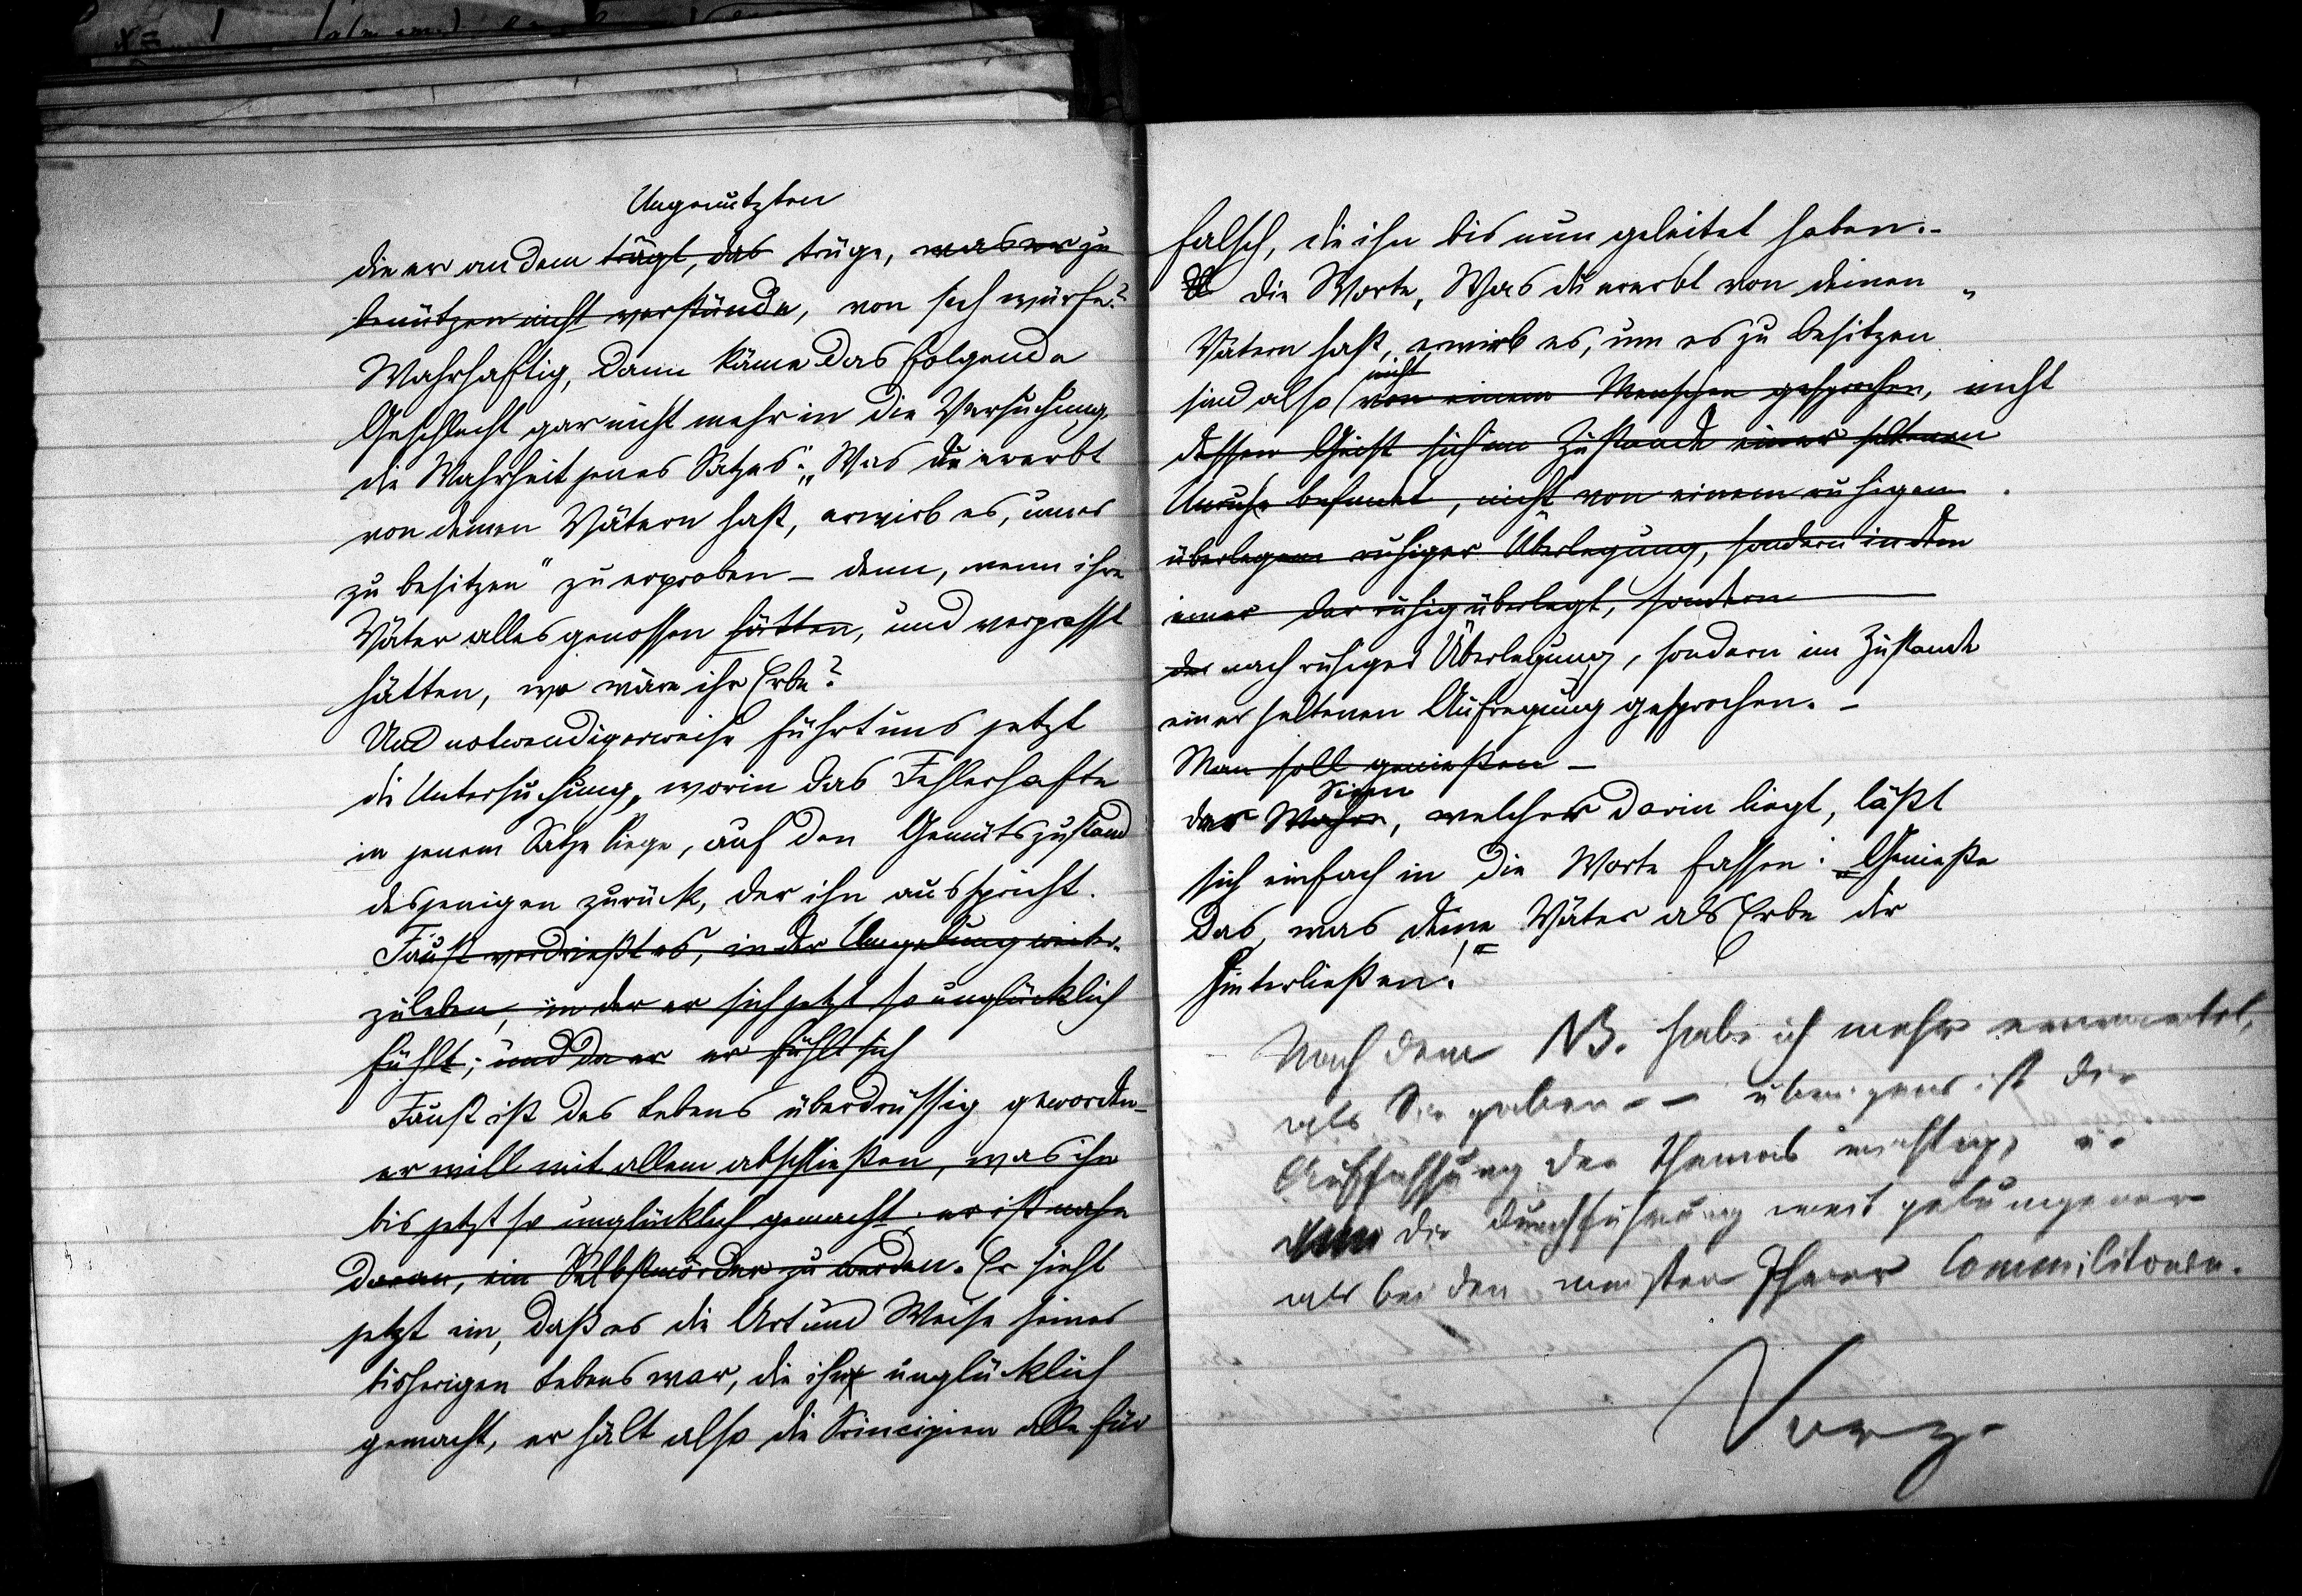 Ungenützten
die er an dem trägt, das trüge, was er zu
benützen nicht verstünde, von sich würfe?
Wahrhaftig, dann käme das folgende
Geschlecht gar nicht mehr in die Versuchung,
die Wahrheit jenes Satzes: „Was du ererbt
von deinen Vätern hast, erwirb es, um es
zu besitzen" zu erproben – denn, wenn ihre
Väter alles genossen hätten, und verprasst
hätten, wo wäre ihr Erbe?
Und notwendigerweise führt uns jetzt
die Untersuchung, worin das Fehlerhafte
in jenem Satze liege, auf den Gemütszustand
desjenigen zurück, der ihn ausspricht.
Faust verdrießt es, in der Umgebung weiter-
zuleben, in der er sich jetzt so unglücklich
fühlt; und da er er fühlt sich
Faust ist des Lebens überdrüssig geworden –
er will mit allem abschließen, was ihn
bis jetzt so unglücklich gemacht; er ist nahe
daran, ein Selbstmörder zu werden. Er sieht
jetzt ein, daß es die Art und Weise seines
bisherigen Lebens war, die ihn unglücklich
gemacht, er hält also die Principien alle für
falsch, die ihn bis nun geleitet haben. –
Die Worte „Was du ererbt von deinen
Vätern hast, erwirb es, um es zu besitzen"
nicht
sind also von einem Menschen gesprochen, nicht
dessen Geist sich im Zustande einer seltenen
Unruhe befindet, nicht von einem ruhigen
überlegen ruhiger Überlegung, sondern in dem
einer der ruhig überlegt, sondern
der nach ruhiger Überlegung, sondern im Zustande
einer seltenen Aufregung gesprochen. –
Man soll genießen –
Sinn
der Wahre, welcher darin liegt, läßt
sich einfach in die Worte fassen: „Genieße
das, was deine Väter als Erbe dir
hinterließen!"
Nach dem NB. habe ich mehr erwartet,
als Sie gaben – – übrigens ist die
Auffassung des Themas richtig, u.
die Durchführung weit gelungener
als bei den meisten Ihrer Commilitonen.